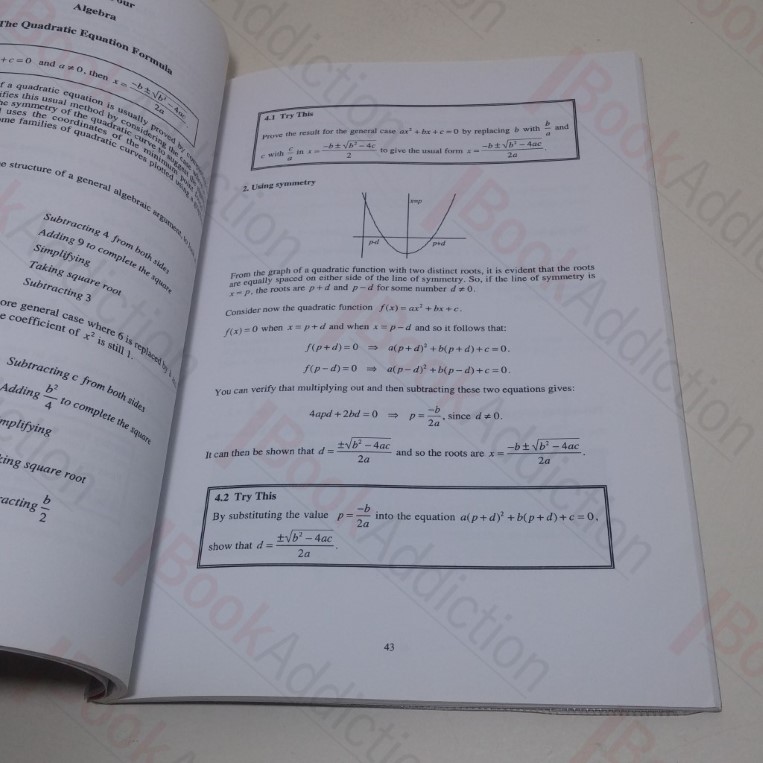 our
Algebra
The Quadratic Equation Formula
+ c = 0 and a ≠ 0, then x = (-b ± √(b² - 4ac))/2a
f a quadratic equation is usually proved by
ifies this usual method by considering the
he symmetry of the quadratic curve to suggest
uses the coordinates of the minimum
me families of quadratic curves plotted using a
e structure of a general algebraic argument,
Subtracting 4 from both sides
Adding 9 to complete the square
Simplifying
Taking square root
Subtracting 3
ore general case where 6 is replaced by
e coefficient of x² is still 1.
Subtracting c from both sides
Adding b²/4 to complete the square
mplifying
king square root
racting b/2
4.1 Try This
Prove the result for the general case ax² + bx + c = 0 by replacing b with b/a and
c with c/a in x = (-b ± √(b² - 4c))/2 to give the usual form x = (-b ± √(b² - 4ac))/2a
2. Using symmetry
x=p
p-d p+d
From the graph of a quadratic function with two distinct roots, it is evident that the roots
are equally spaced on either side of the line of symmetry. So, if the line of symmetry is
x = p, the roots are p + d and p - d for some number d ≠ 0.
Consider now the quadratic function f(x) = ax² + bx + c.
f(x) = 0 when x = p + d and when x = p - d and so it follows that:
f(p + d) = 0 ⇒ a(p + d)² + b(p + d) + c = 0.
f(p - d) = 0 ⇒ a(p - d)² + b(p - d) + c = 0.
You can verify that multiplying out and then subtracting these two equations gives:
4apd + 2bd = 0 ⇒ p = -b/2a, since d ≠ 0.
It can then be shown that d = ±√(b² - 4ac)/2a and so the roots are x = (-b ± √(b² - 4ac))/2a.
4.2 Try This
By substituting the value p = -b/2a into the equation a(p + d)² + b(p + d) + c = 0,
show that d = ±√(b² - 4ac)/2a.
43
BookAddiction